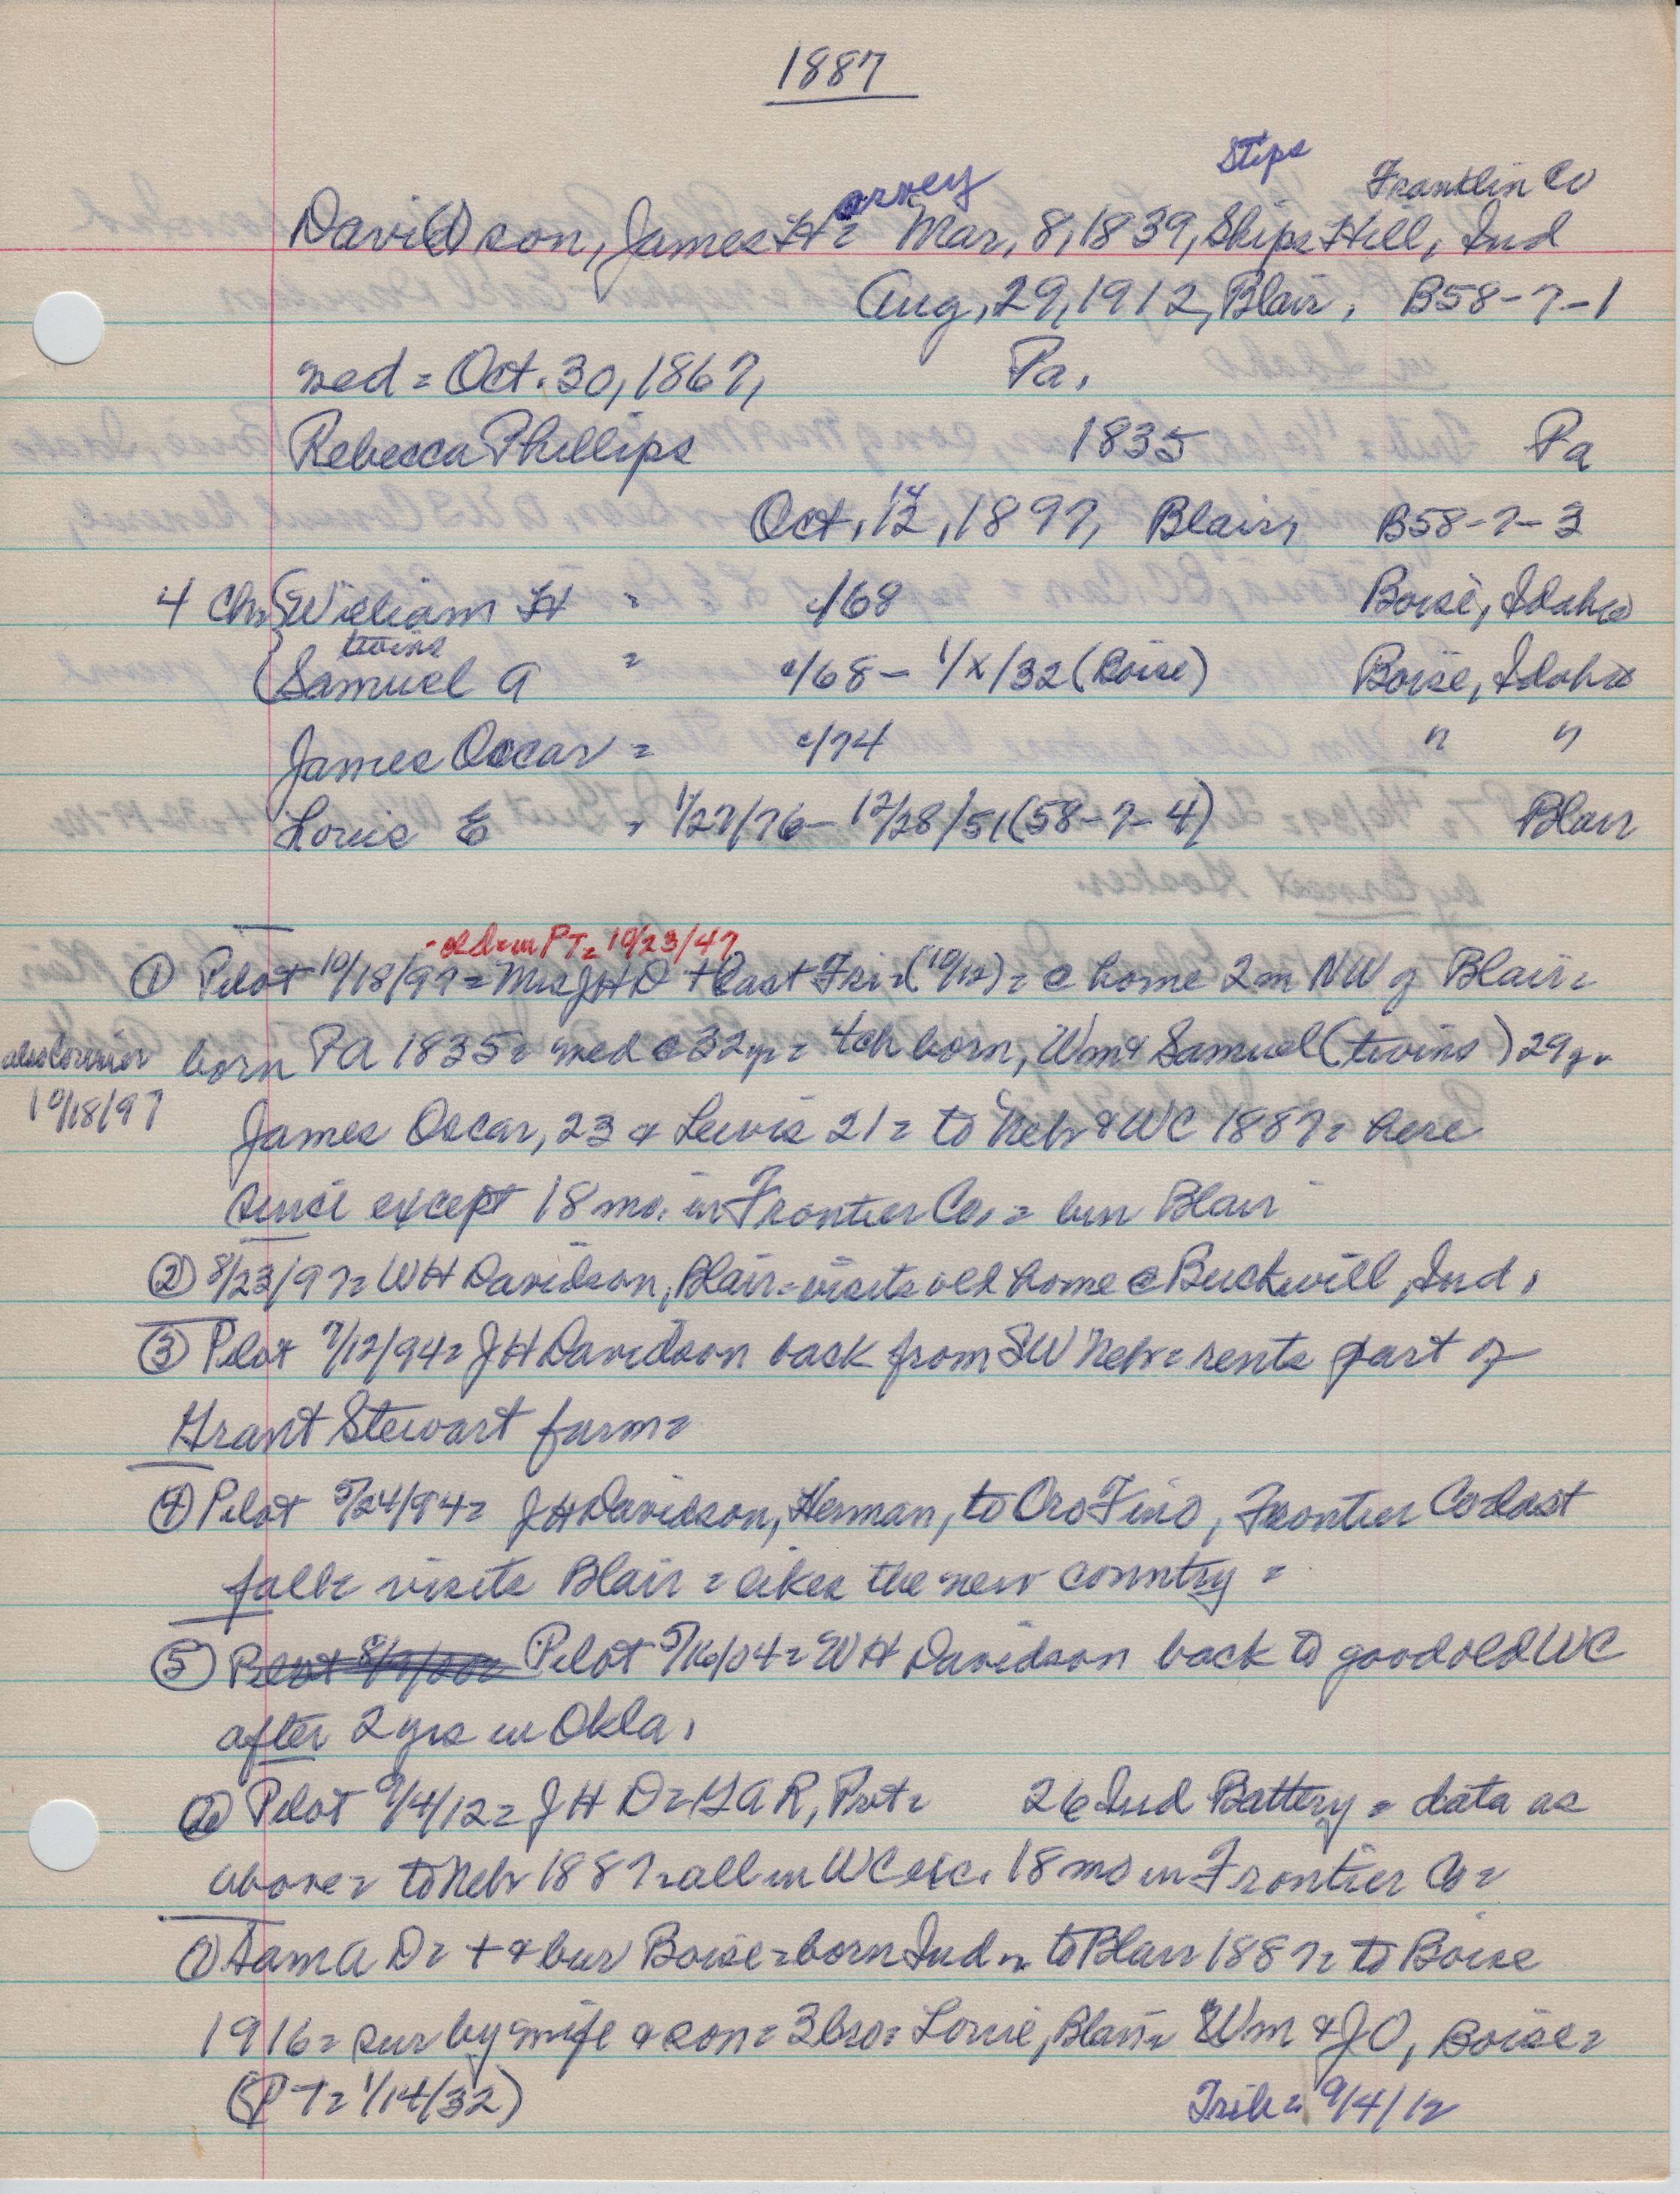 1887
Stips Franklin Co
arvey
Davi(d)son, James H = Mar, 8, 1839, Skips Hill, Ind
Aug, 29, 1912, Blair, B58-7-1
med = Oct. 30, 1867, Pa,
Rebecca Phillips 1835 Pa
14
Oct, 12, 1897, Blair, B58-7-3
4 Chn { William H = c/68 Boise, Idaho
twins
Samuel A = c/68 - 1/x/32 (Boise) Boise, Idaho
James Oscar = c/74 " "
Louis E = 1/27/76 - 12/28/51 (58-7-4) Blair
PT = 10/23/47
① Pilot 10/18/97 = Mrs JHD + last Fri = (10/12) = @ home 2 m NW of Blair =
also Courier
10/18/97
born PA 1835 = med c 32 yr = 4 ch born, Wm & Samuel (twins) 29 yr
James Oscar, 23 & Lewis 21 = to Nebr & WC 1887 = here
since except 18 mo. in Frontier Co, = bur Blair
② 8/23/97 = WH Davidson, Blair = visits old home @ Buckwill, Ind,
③ Pilot 7/12/94 = JH Davidson back from SW Nebr = rents part of
Grant Stewart farm =
④ Pilot 5/24/94 = JH Davidson, Herman, to Oro Fino, Frontier Co last
fall = visits Blair = likes the new country =
⑤ Pilot Pilot 5/16/04 = WH Davidson back to good old WC
after 2 yrs in Okla,
Pilot 9/4/12 = JHD = GAR, Pvt = 26 Ind Battery = data as
above = to Nebr 1887 = all in WC exc. 18 mo in Frontier Co =
Sam A D = + & bur Boise = born Ind = to Blair 1887 = to Boise
1916 = sur by wife & son = 3 bro = Louie, Blair = Wm & JO, Boise =
(PT = 1/14/32) Trib = 9/4/12